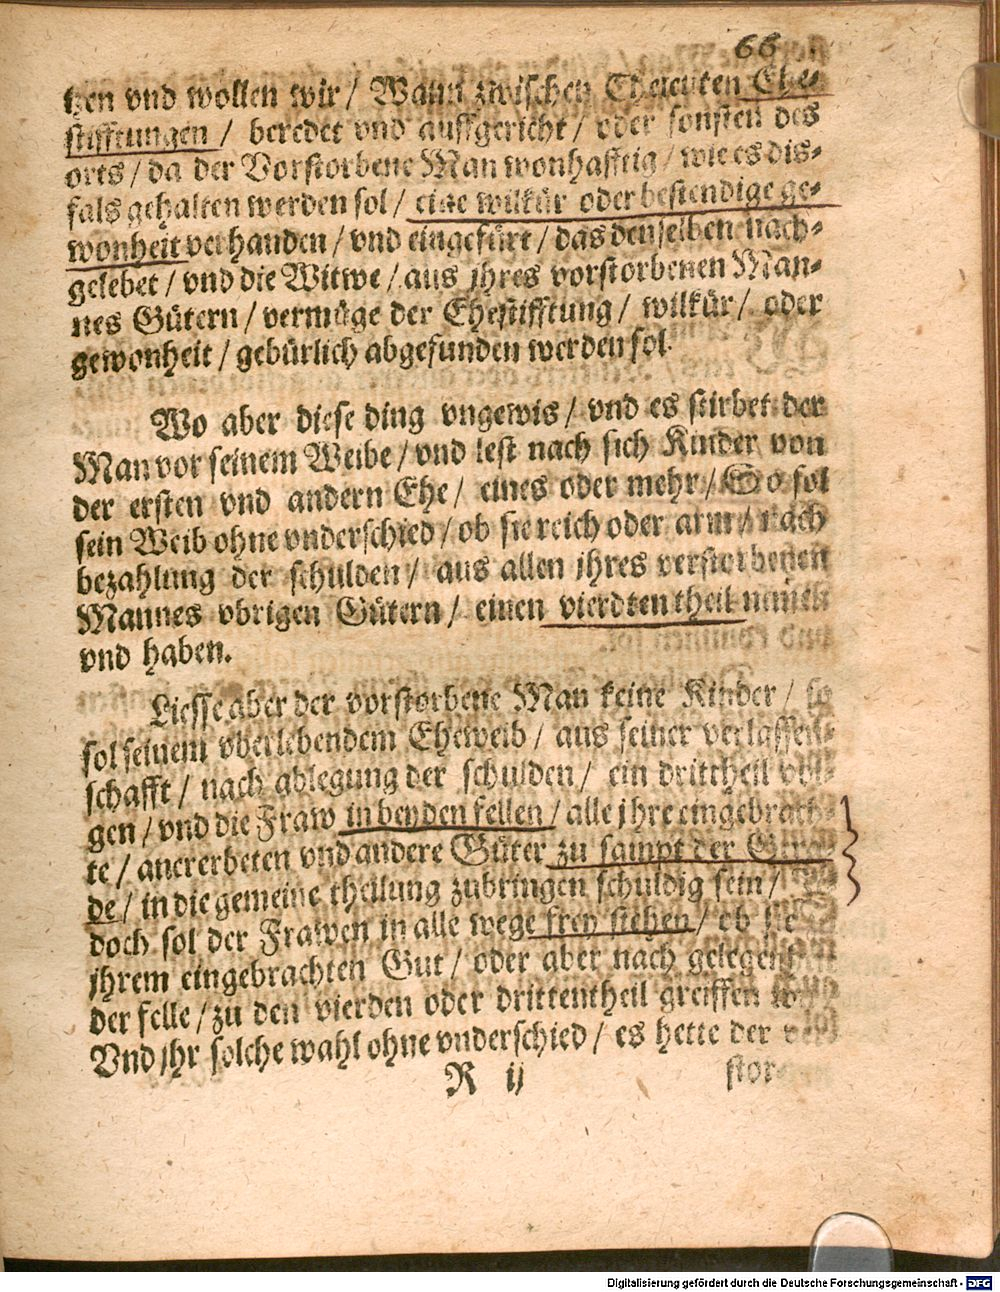 66
tzen vnd wollen wir / Wann zwischen Eheleuten Ehe-
stifftungen / beredet vnd auffgericht / oder sonsten des
orts / da der Vorstorbene Man wonhafftig / wie es dis-
fals gehalten werden sol / eine wilkür oder bestendige ge-
wonheit verhanden / vnd eingefürt / das denselben nach-
gelebet / vnd die Witwe / aus jhres vorstorbenen Man-
nes Gütern / vermüge der Ehestifftung / wilkür / oder
gewonheit / gebürlich abgefunden werden sol.
Wo aber diese ding vngewis / vnd es stirbet der
Man vor seinem Weibe / vnd lest nach sich Kinder von
der ersten vnd andern Ehe / eines oder mehr / So sol
sein Weib ohne vnderschied / ob sie reich oder arm / nach
bezahlung der schulden / aus allen jhres verstorbenen
Mannes vbrigen Gütern / einen vierdten theil nemen
vnd haben.
Liesse aber der vorstorbene Man keine Kinder / so
sol seinem vberlebendem Eheweib / aus seiner verlassen-
schafft / nach ablegung der schulden / ein dritttheil vol-
gen / vnd die Fraw in beyden fellen / alle jhre eingebrach-
te / anererbeten vnd andere Güter zu sampt der Gera-
de / in die gemeine theilung zubringen schuldig sein /
doch sol der Frawen in alle wege frey stehen / ob sie
jhrem eingebrachten Gut / oder aber nach gelegenheit
der felle / zu den vierden oder drittentheil greiffen
Vnd jhr solche wahl ohne vnderschied / es hette der ver-
R ij stor-
Digitalisierung gefördert durch die Deutsche Forschungsgemeinschaft - DFG